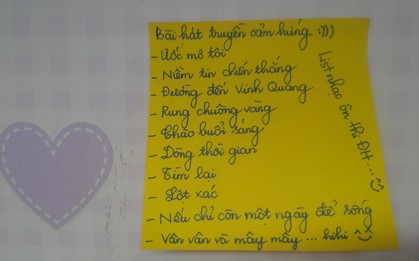 Bài hát truyền cảm hứng :)))
- Ước mơ tôi
- Niềm tin chiến thắng
- Đường đến Vinh Quang
- Rung chuông vàng
- Chào buổi sáng
- Dòng thời gian
- Tìm lại
- Lột xác
- Nếu chỉ còn một ngày để sống
- Vân vân và mây mây ... hihi ^^
List nhạc ôn thi ĐH ...